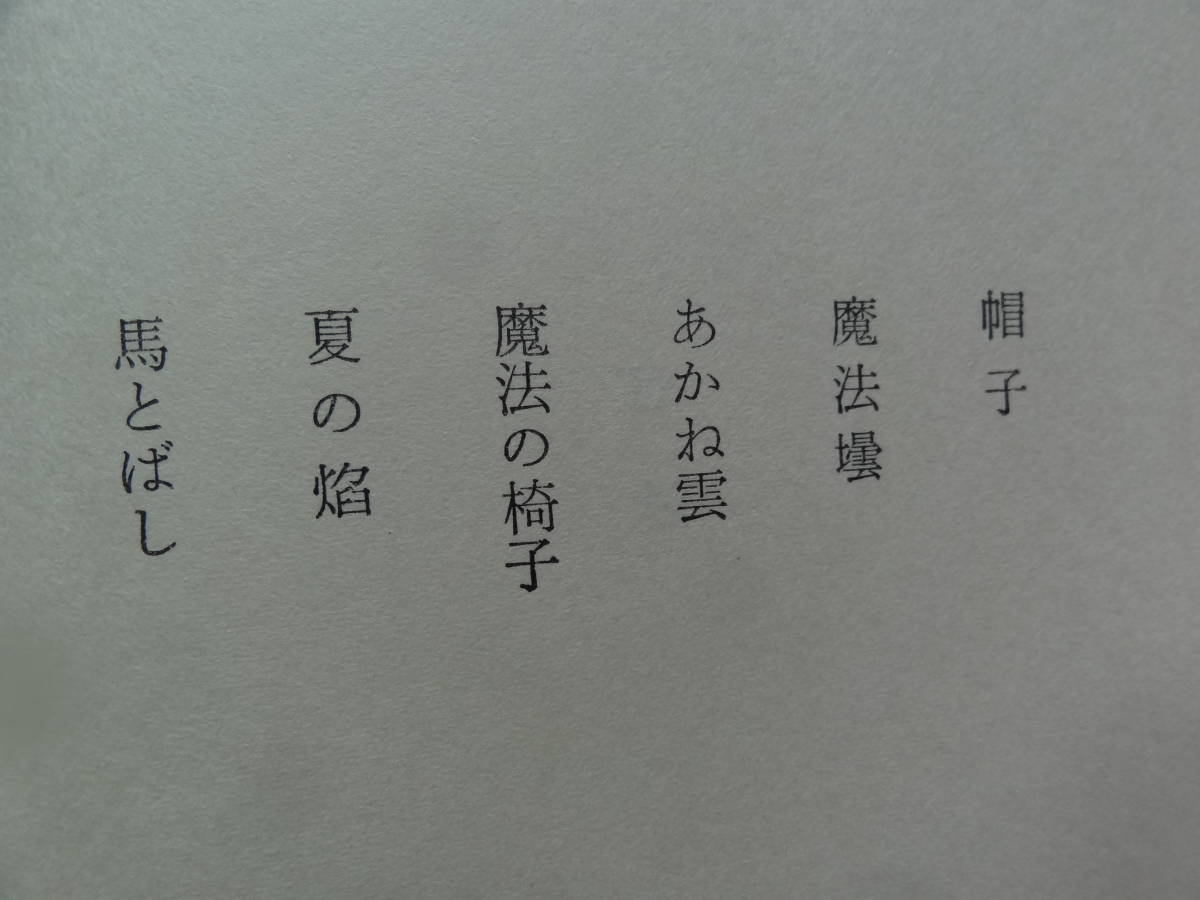 帽子
魔法壜
あかね雲
魔法の椅子
夏の焰
馬とばし